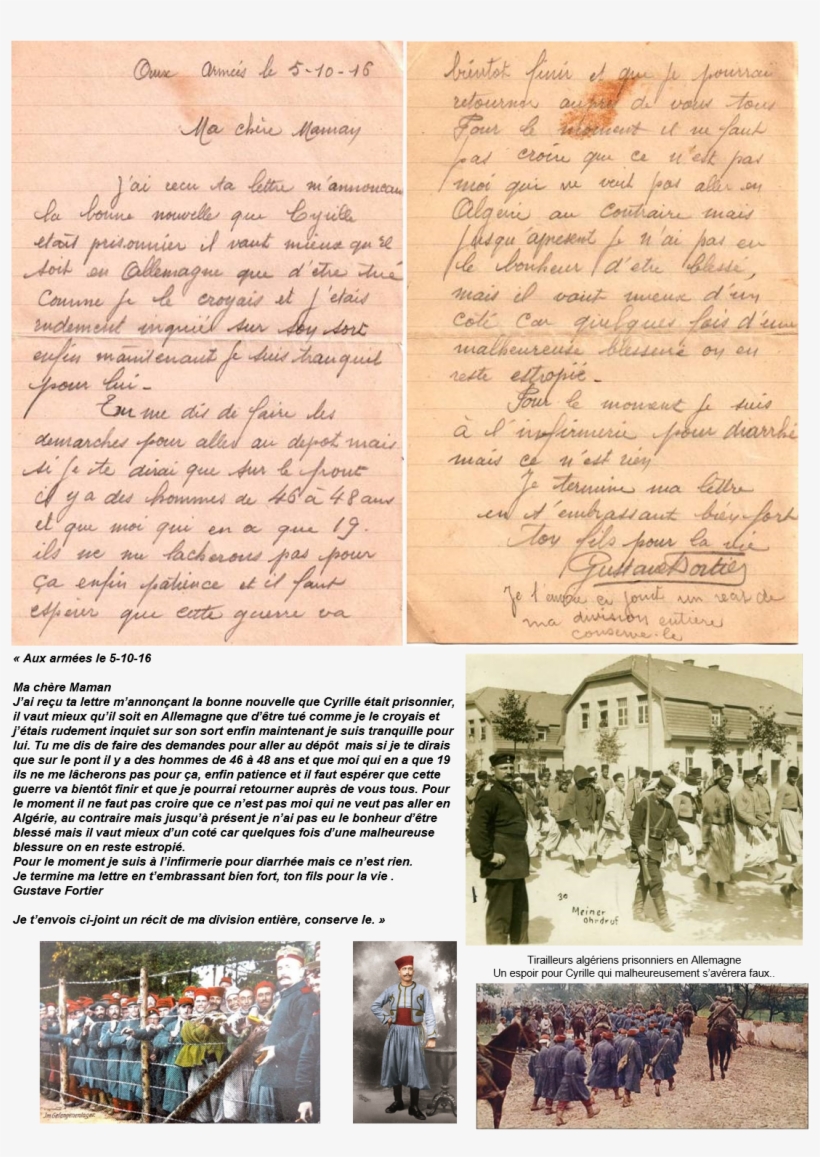 Aux Armées le 5-10-16
Ma chère Maman
J'ai recu ta lettre m'annoncan
la bonne nouvelle que Cyrille
etait prisonnier il vaut mieux qu'il
soit en Allemagne que d'être tué
Comme je le croyais et j'étais
rudement inquiet sur son sort
enfin maintenant je suis tranquil
pour lui -
Tu me dis de faire les
demarches pour aller au depot mais
si je te dirai que sur le front
il y a des hommes de 46 à 48 ans
et que moi qui en a que 19.
ils ne me lacherons pas pour
ça enfin patience et il faut
espérer que cette guerre va
bientot finir et que je pourrai
retourner aupré de vous tous
Pour le moment il ne faut
pas croire que ce n'est pas
moi qui ne veut pas aller en
Algérie au contraire mais
jusqu'apresent je n'ai pas eu
le bonheur d'etre blessé,
mais il vaut mieux d'un
coté car quelques fois d'une
malheureuse blessure on en
reste estropié -
Pour le moment je suis
à l'infirmerie pour diarrhé
mais ce n'est rien
Je termine ma lettre
en t'embrassant bien fort
ton fils pour la vie
Gustave Fortier
Je t'envoie ci joint un
ma division entière
conserve-le
« Aux armées le 5-10-16
Ma chère Maman
J'ai reçu ta lettre m'annonçant la bonne nouvelle que Cyrille était prisonnier,
il vaut mieux qu'il soit en Allemagne que d'être tué comme je le croyais et
j'étais rudement inquiet sur son sort enfin maintenant je suis tranquille pour
lui. Tu me dis de faire des demandes pour aller au dépôt mais si je te dirais
que sur le pont il y a des hommes de 46 à 48 ans et que moi qui en a que 19
ils ne me lâcherons pas pour ça, enfin patience et il faut espérer que cette
guerre va bientôt finir et que je pourrai retourner auprès de vous tous. Pour
le moment il ne faut pas croire que ce n'est pas moi qui ne veut pas aller en
Algérie, au contraire mais jusqu'à présent je n'ai pas eu le bonheur d'être
blessé mais il vaut mieux d'un coté car quelques fois d'une malheureuse
blessure on en reste estropié.
Pour le moment je suis à l'infirmerie pour diarrhée mais ce n'est rien.
Je termine ma lettre en t'embrassant bien fort, ton fils pour la vie .
Gustave Fortier
Je t'envois ci-joint un récit de ma division entière, conserve le. »
30
Meiner
Ohrdruf
Tirailleurs algériens prisonniers en Allemagne
Un espoir pour Cyrille qui malheureusement s'avérera faux..